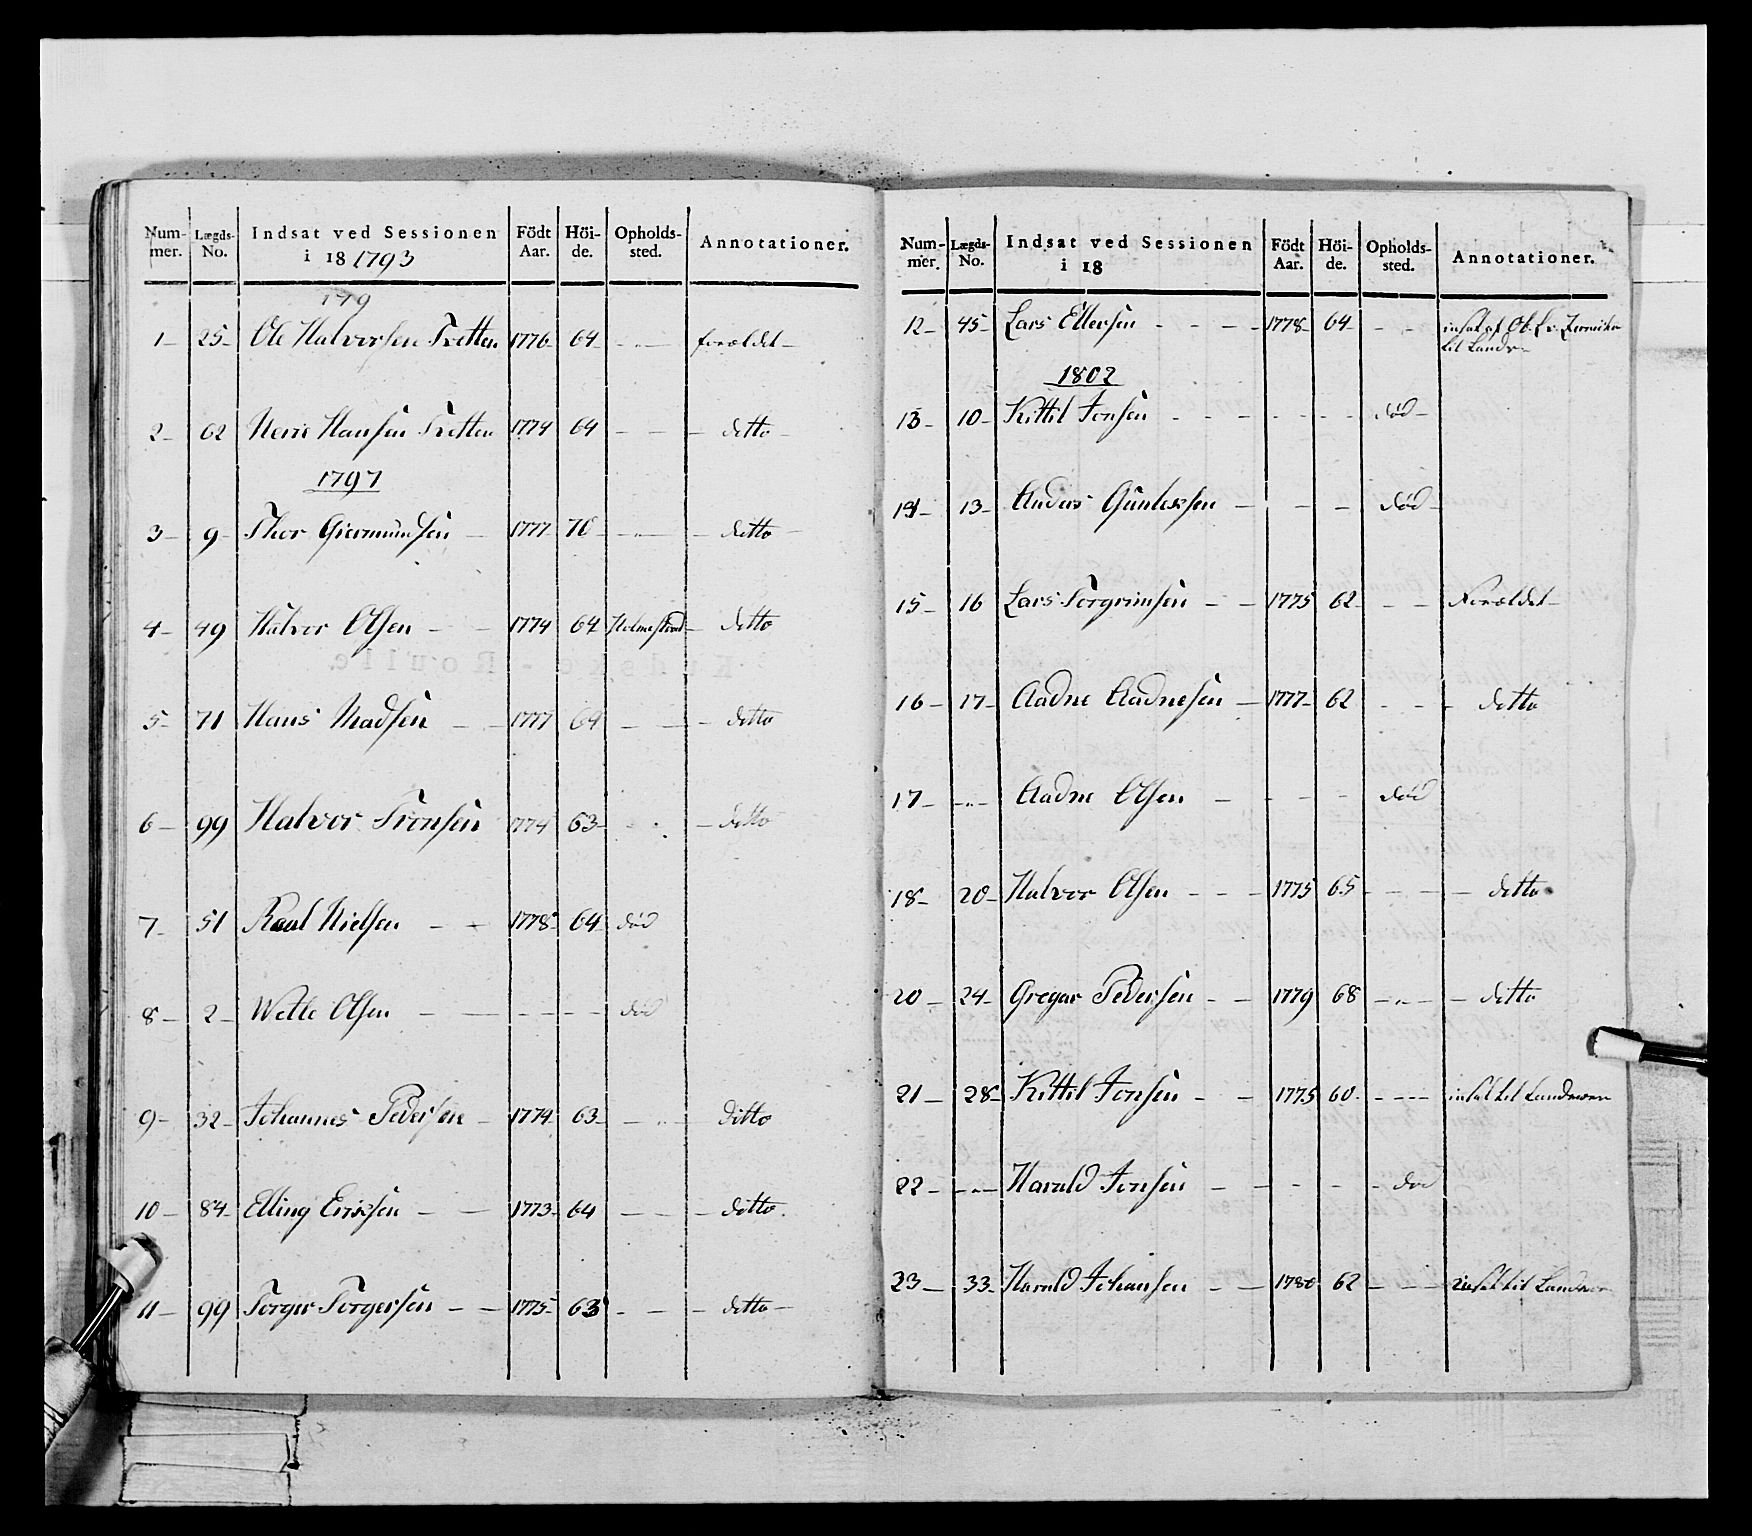 Num- Lægds- Indsat ved Sessionen Födt Höi- Opholds- Annotationer.
mer. No. i 18 1793 Aar. de. sted.
179
1 - 25 - Ole Halvorsen Tvetten 1776 - 64 - - " - forældet -
2 - 62 Hans Hansen Tvetten 1774 64 - - - detto -
1797
3 - 9 - Thor Giermundsen - 1777 - 70 - - " - - detto -
4 - 49 Halvor Olsen - - 1774 64 Holmestrand - detto
5 - 71 Hans Madsen - - 1777 64 - - - detto
6 - 99 Halvor Tronsen 1774 63 - - - detto
7 - 51 Paul Nielsen - - 1778 - 64 - död
8 - 2 - Wetle Olsen - - - - - - död
9 - 32 - Johannes Pedersen - 1774 - 63 - - " - ditto
10 - 84 - Elling Erichsen - - 1773 - 64 - - - detto.
11 - 99 Torger Torgersen - - 1775 - 63 - - - detto -
Num- Lægds- Indsat ved Sessionen Födt Höi- Opholds- Annotationer.
mer. No. i 18 Aar. de. sted.
12 - 45 - Lars Ellersen - - - - 1778 - 64 - - - insat af Ob. L. v.
til Landv -
1802
13 - 10 - Kittil Jonsen - - - - - - - död -
14 - 13 - Anders Gunlechsen - - - död -
15 - 16 Lars Torgrimsen - - 1775 62 - - - Forældet -
16 - 17 - Aadne Aadnesen - 1777 - 62 - - - detto
17 - - " - Aadne Olsen - - - - död
18 - 20 - Halvor Olsen - - - 1775 65 - - - - detto
20 - 24 - Gregar Pedersen - - 1779 68 - " - - detto
21 - 28 - Kittil Jonsen - - 1775 60 - - - - insat til Landværn
22 - - " - Harald Jonsen - - - - - död
23 - 33 - Harald Johansen - - 1780 62 - - - - insat til Landvær